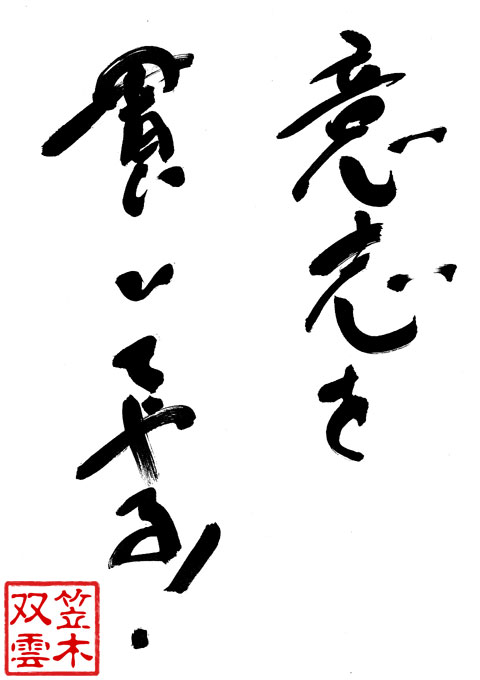 意志を
貫いてやる!
笠木
双雲